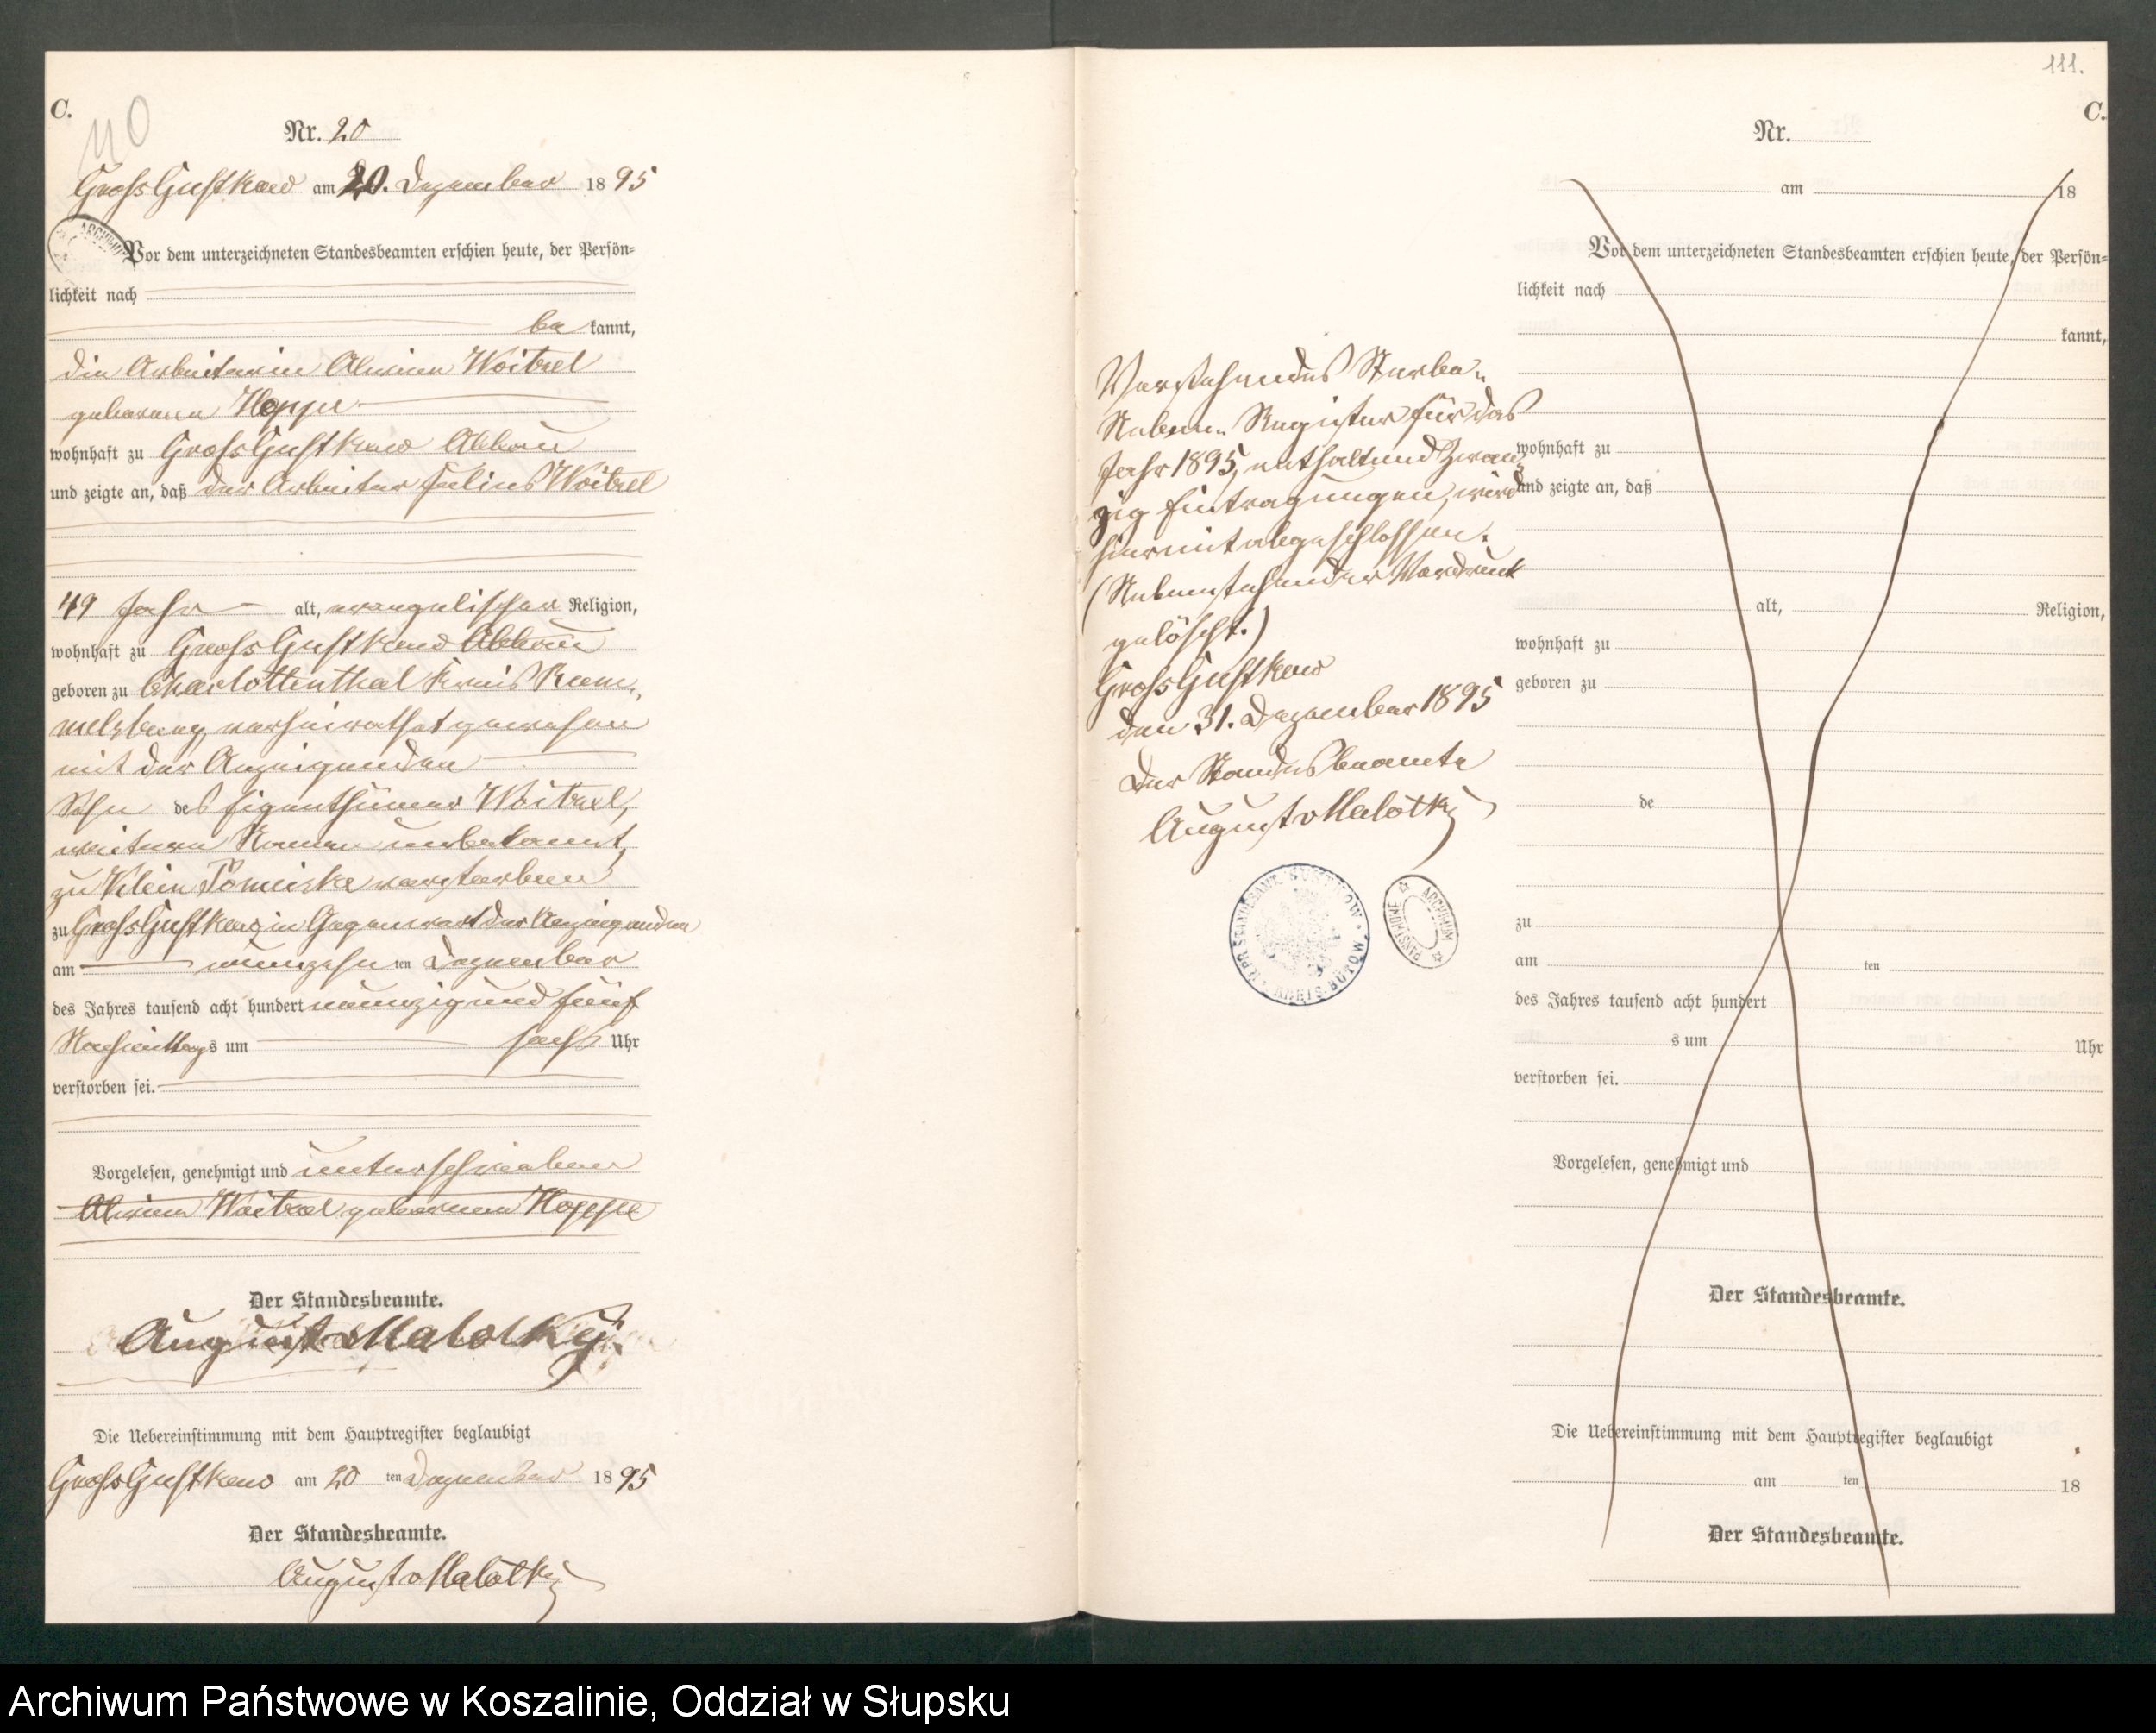 C.
110
Nr. 20
Groß Gustkow am 20. Dezember 1895
ARCHIWUM
Vor dem unterzeichneten Standesbeamten erschien heute, der Persön=
lichkeit nach
be kannt,
die Arbeiterin Alwine Woitzel
geborene Hoppe
wohnhaft zu Groß Gustkow Abbau
und zeigte an, daß der Arbeiter Julius Woitzel
49 Jahr alt, evangelischer Religion,
wohnhaft zu Groß Gustkow Abbau
geboren zu Charlottenthal Kreis Rum=
melsburg, verheirathet gewesen
mit der Anzeigenden
Sohn des Eigenthümer Woitzel,
weiterer Namen unbekannt,
zu Klein Pomeiske verstorben
zu Groß Gustkow, in Gegenwart der Anzeigenden
am neunzehn ten Dezember
des Jahres tausend acht hundert neunzig und fünf
Nachmittags um sechs Uhr
verstorben sei.
Vorgelesen, genehmigt und unterschrieben
Alwine Woitzel geborene Hoppe
Der Standesbeamte.
August v Malotky.
Die Uebereinstimmung mit dem Hauptregister beglaubigt
Groß Gustkow am 20 ten Dezember 1895
Der Standesbeamte.
August v Malotky
Vorstehendes Sterbe=
Neben=Register für das
Jahr 1895, enthaltend Zwan=
zig Eintragungen, wird
hiermit abgeschlossen.
(Nebenstehender Vordruck
gelöscht.)
Groß Gustkow
den 31. Dezember 1895
Der Standesbeamte
August v Malotky
K. PR. STANDESAMT GUSTKOW * KREIS BÜTOW *
ARCHIWUM PAŃSTWOWE
111.
C.
Nr.
am 18
Vor dem unterzeichneten Standesbeamten erschien heute, der Persön=
lichkeit nach
kannt,
wohnhaft zu
und zeigte an, daß
alt, Religion,
wohnhaft zu
geboren zu
de
zu
am ten
des Jahres tausend acht hundert
s um Uhr
verstorben sei.
Vorgelesen, genehmigt und
Der Standesbeamte.
Die Uebereinstimmung mit dem Hauptregister beglaubigt
am ten 18
Der Standesbeamte.
Archiwum Państwowe w Koszalinie, Oddział w Słupsku